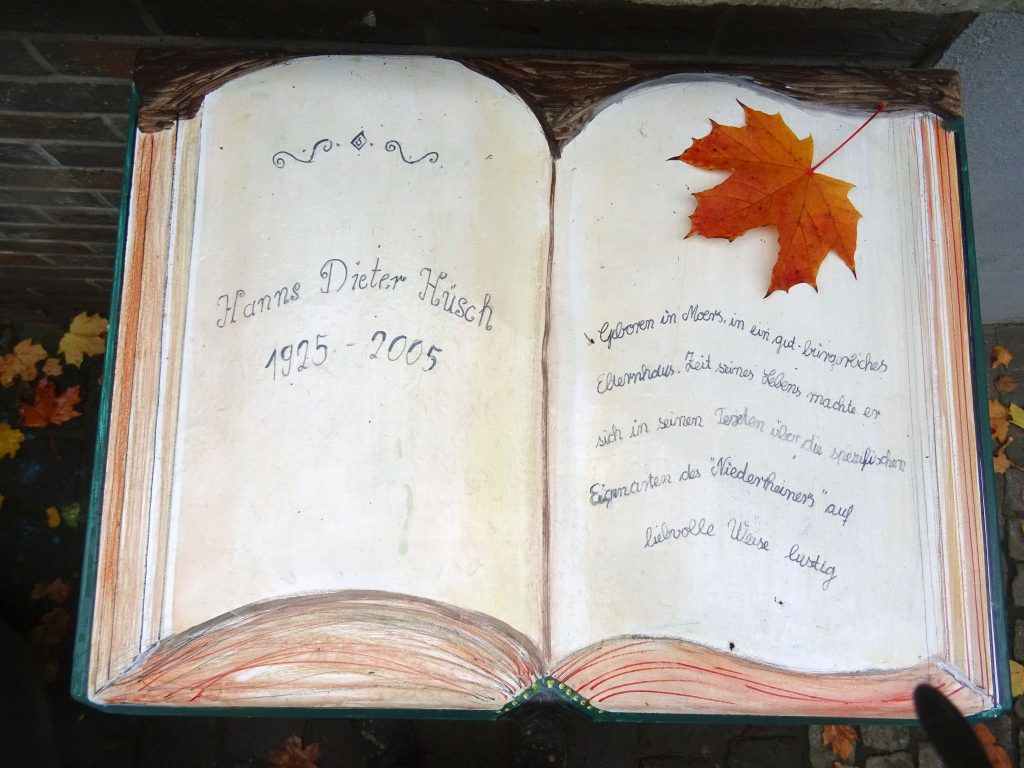 Hanns Dieter Hüsch
1925 - 2005
Geboren in Moers, in ein gut-bürgerliches
Elternhaus. Zeit seines Lebens machte er
sich in seinen Texten über die spezifischen
Eigenarten des "Niederrheiners" auf
liebvolle Weise lustig